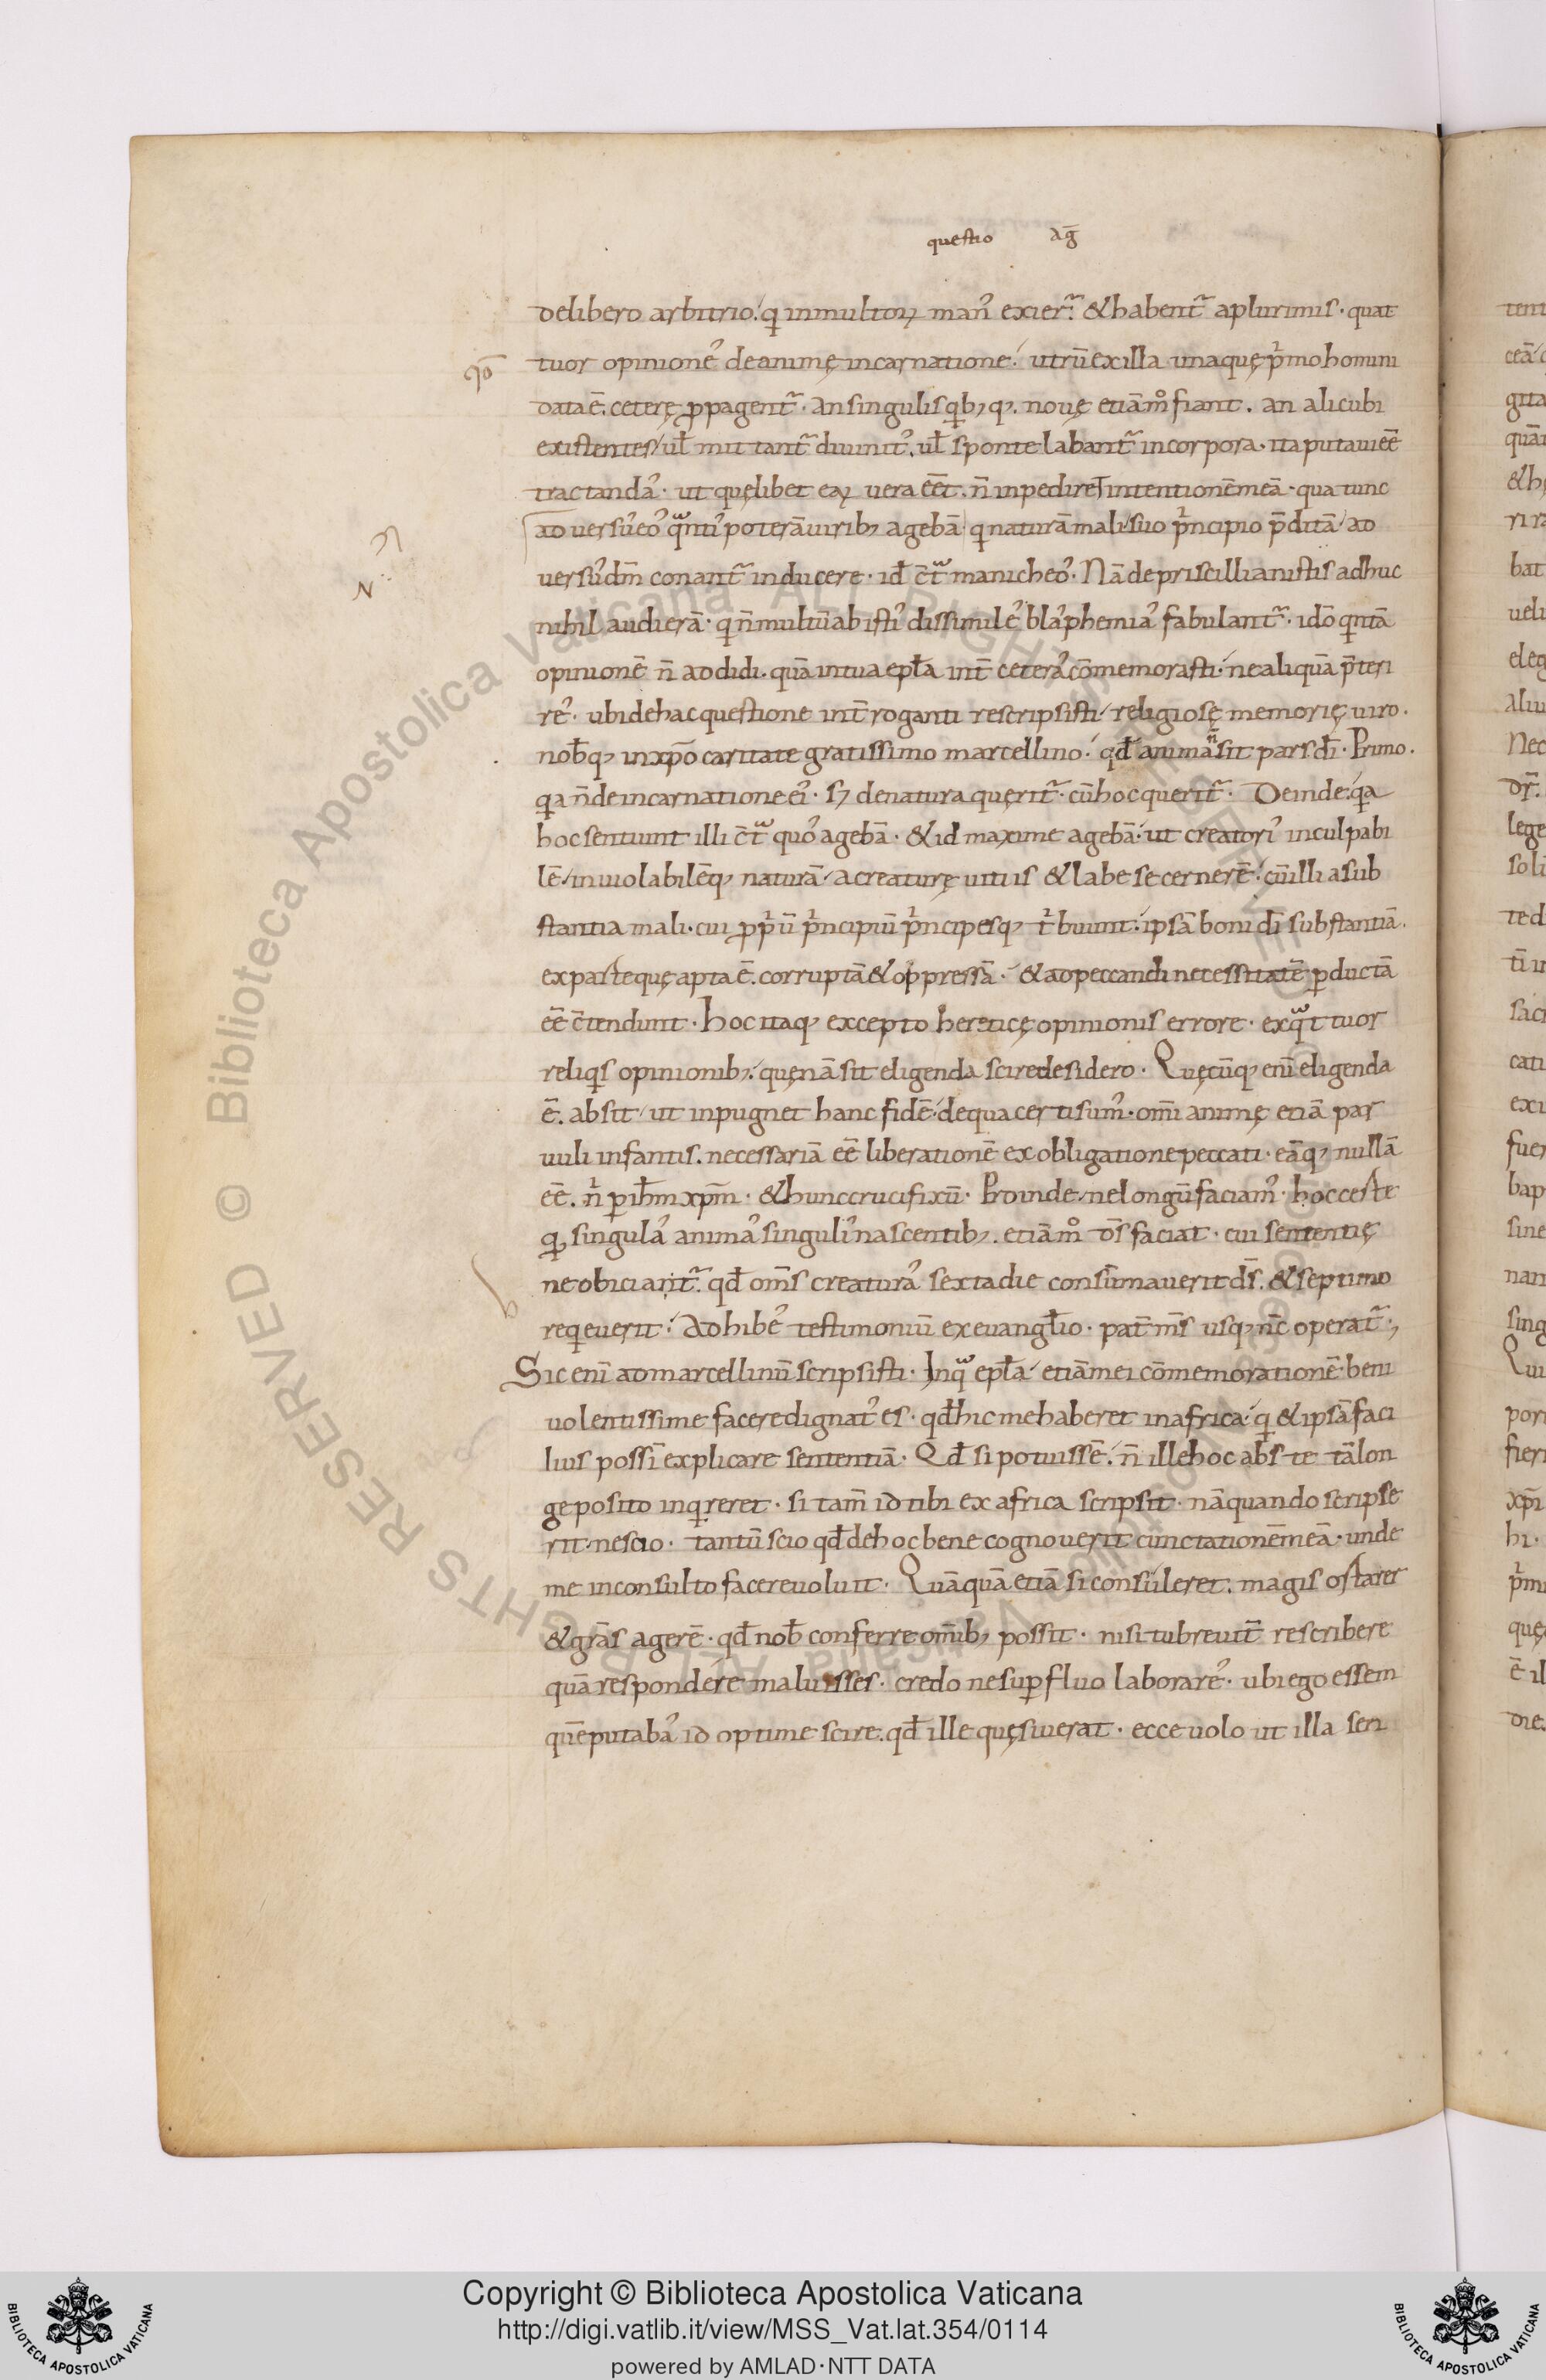 questio aḡ
delibero arbitrio. qi inmultoꝝ man᾽ exier̃. & habent̃ aplurimis · quat
tuor opinione᾽ deanimę incarnatione. utrū exilla unaquę p̍mo homini
qō
data ē. ceterę ꝓpagent̃ · an singulis qib; q; nouę etiā m̊ fiant. an alicubi
existentes ul̄ mittant̃ diuinit᾽. ul̄ sponte labant̃ incorpora · ita putaui eē̄
tractanda᾽ · ut quęlibet eaꝝ uera eēt. n̄ inpediret intentionē meā · qua tunc
aduersu᾽ eo᾽ qanti᾽ poterā uirib; agebā · qi naturā mali suo p̍ncipio p̄ditā ad
N
uersu᾽ dm̄ conant̃ inducere · id c̄t manicheo᾽ · Nā de priscillianistis adhuc
nihil audierā · qi n̄ multū ab isti᾽ dissimile᾽ bla᾽phemia᾽ fabulant̃ · idō qintā
opinionē n̄ addidi · quā intua epl̄a int̄ cetera᾽ cōmemorasti · ne aliquā p̄teri
re᾽ · ubi dehac questione int̄roganti rescripsisti religiosę memorię uiro ·
nob̄q; inxp̄o caritate gratissimo marcellino · qd̄ anima n̄ sit pars dī · Primo ·
qia n̄ de incarnatione ei᾽ · sꝫ denatura quęrit̃ · cū hoc querit̃ · Deinde qia
hoc sentiunt illi c̄t quo᾽ agebā · & id maxime agebā · ut creatori᾽ inculpabi
lē inuiolabilēq; naturā a creaturę uitiis & labe secernerē · cū illi a sub
stantia mali · cui ꝓp̍ū p̍ncipiū p̍ncipesq; t̍buunt · ipsā boni dī substantiā ·
ex parte quę apta ē. corruptā & oppressā · & adpeccandi necessitatē ꝑductā
eē c̄tendunt · Hoc itaq; excepto hereticę opinionis errore · ex qattuor
reliqis opinionib; quęnā sit eligenda scire desidero · Quęcūq; enī eligenda
ē. absit ut inpugnet hanc fidē dequa certi sum᾽ · omī animę etiā par
uuli infantis. necessariā eē liberationē ex obligatione peccati · eāq; nullā
eē. n̍ ꝑ ih̄m xp̄m · & hunc crucifixū · Proinde ne longū faciam᾽ · hoc certe
 singula᾽ anima᾽ singuli᾽ nascentib; etiā m̊ d̄s faciat · cui sententię
ne obiciant̃ qd̄ om̄s creatura᾽ sexta die consūmauerit d̄s. & septimo
reqieuerit · Adhibe᾽ testimoniū ex euangl̄io · pat̄ m̄s usq; nc̄ operat̃ ·,
Sic enī admarcellinū scripsisti · Inqa epl̄a etiā mei cōmemorationē beni
uolentissime facere dignat᾽ es · qd̄ hic me haberet inafrica qi & ipsā faci
lius possī explicare sententiā · Qd̄ si potuissē. n̄ ille hoc abs te tā lon
ge posito inqireret · si tam̄ id tibi ex africa scripsit · nā quando scripse
rit nescio · tantū scio qd̄ dehoc bene cognouerit cunctationē meā · unde
me inconsulto facere uoluit · Quāquā etiā si consuleret. magis
& grās agerē · qd̄ nob̄ conferre omīb; possit · nisi tu breuit̄ rescribere
quā respondere maluisses · credo ne suꝑfluo laborare᾽ · ubi ego essem
quē putaba᾽ id optime scire. qd̄ ille quęsiuerat · ecce uolo ut illa sen
© Biblioteca Apostolica Vaticana ALL RIGHTS RESERVED
Copyright © Biblioteca Apostolica Vaticana
http://digi.vatlib.it/view/MSS_Vat.lat.354/0114
powered by AMLAD·NTT DATA
BIBLIOTECA APOSTOLICA VATICANA
BIBLIOTECA APOSTOLICA VATICANA